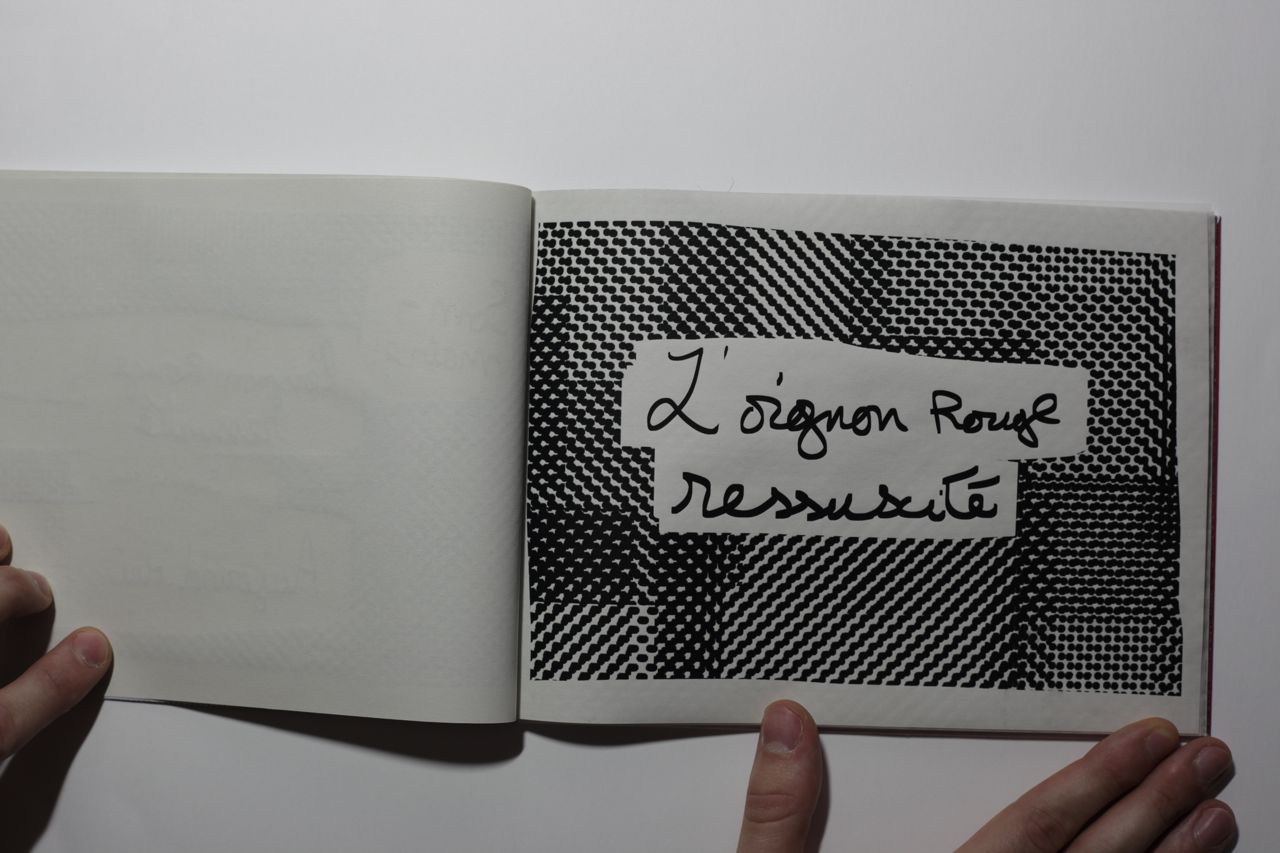 L'oignon Rouge
ressuscité